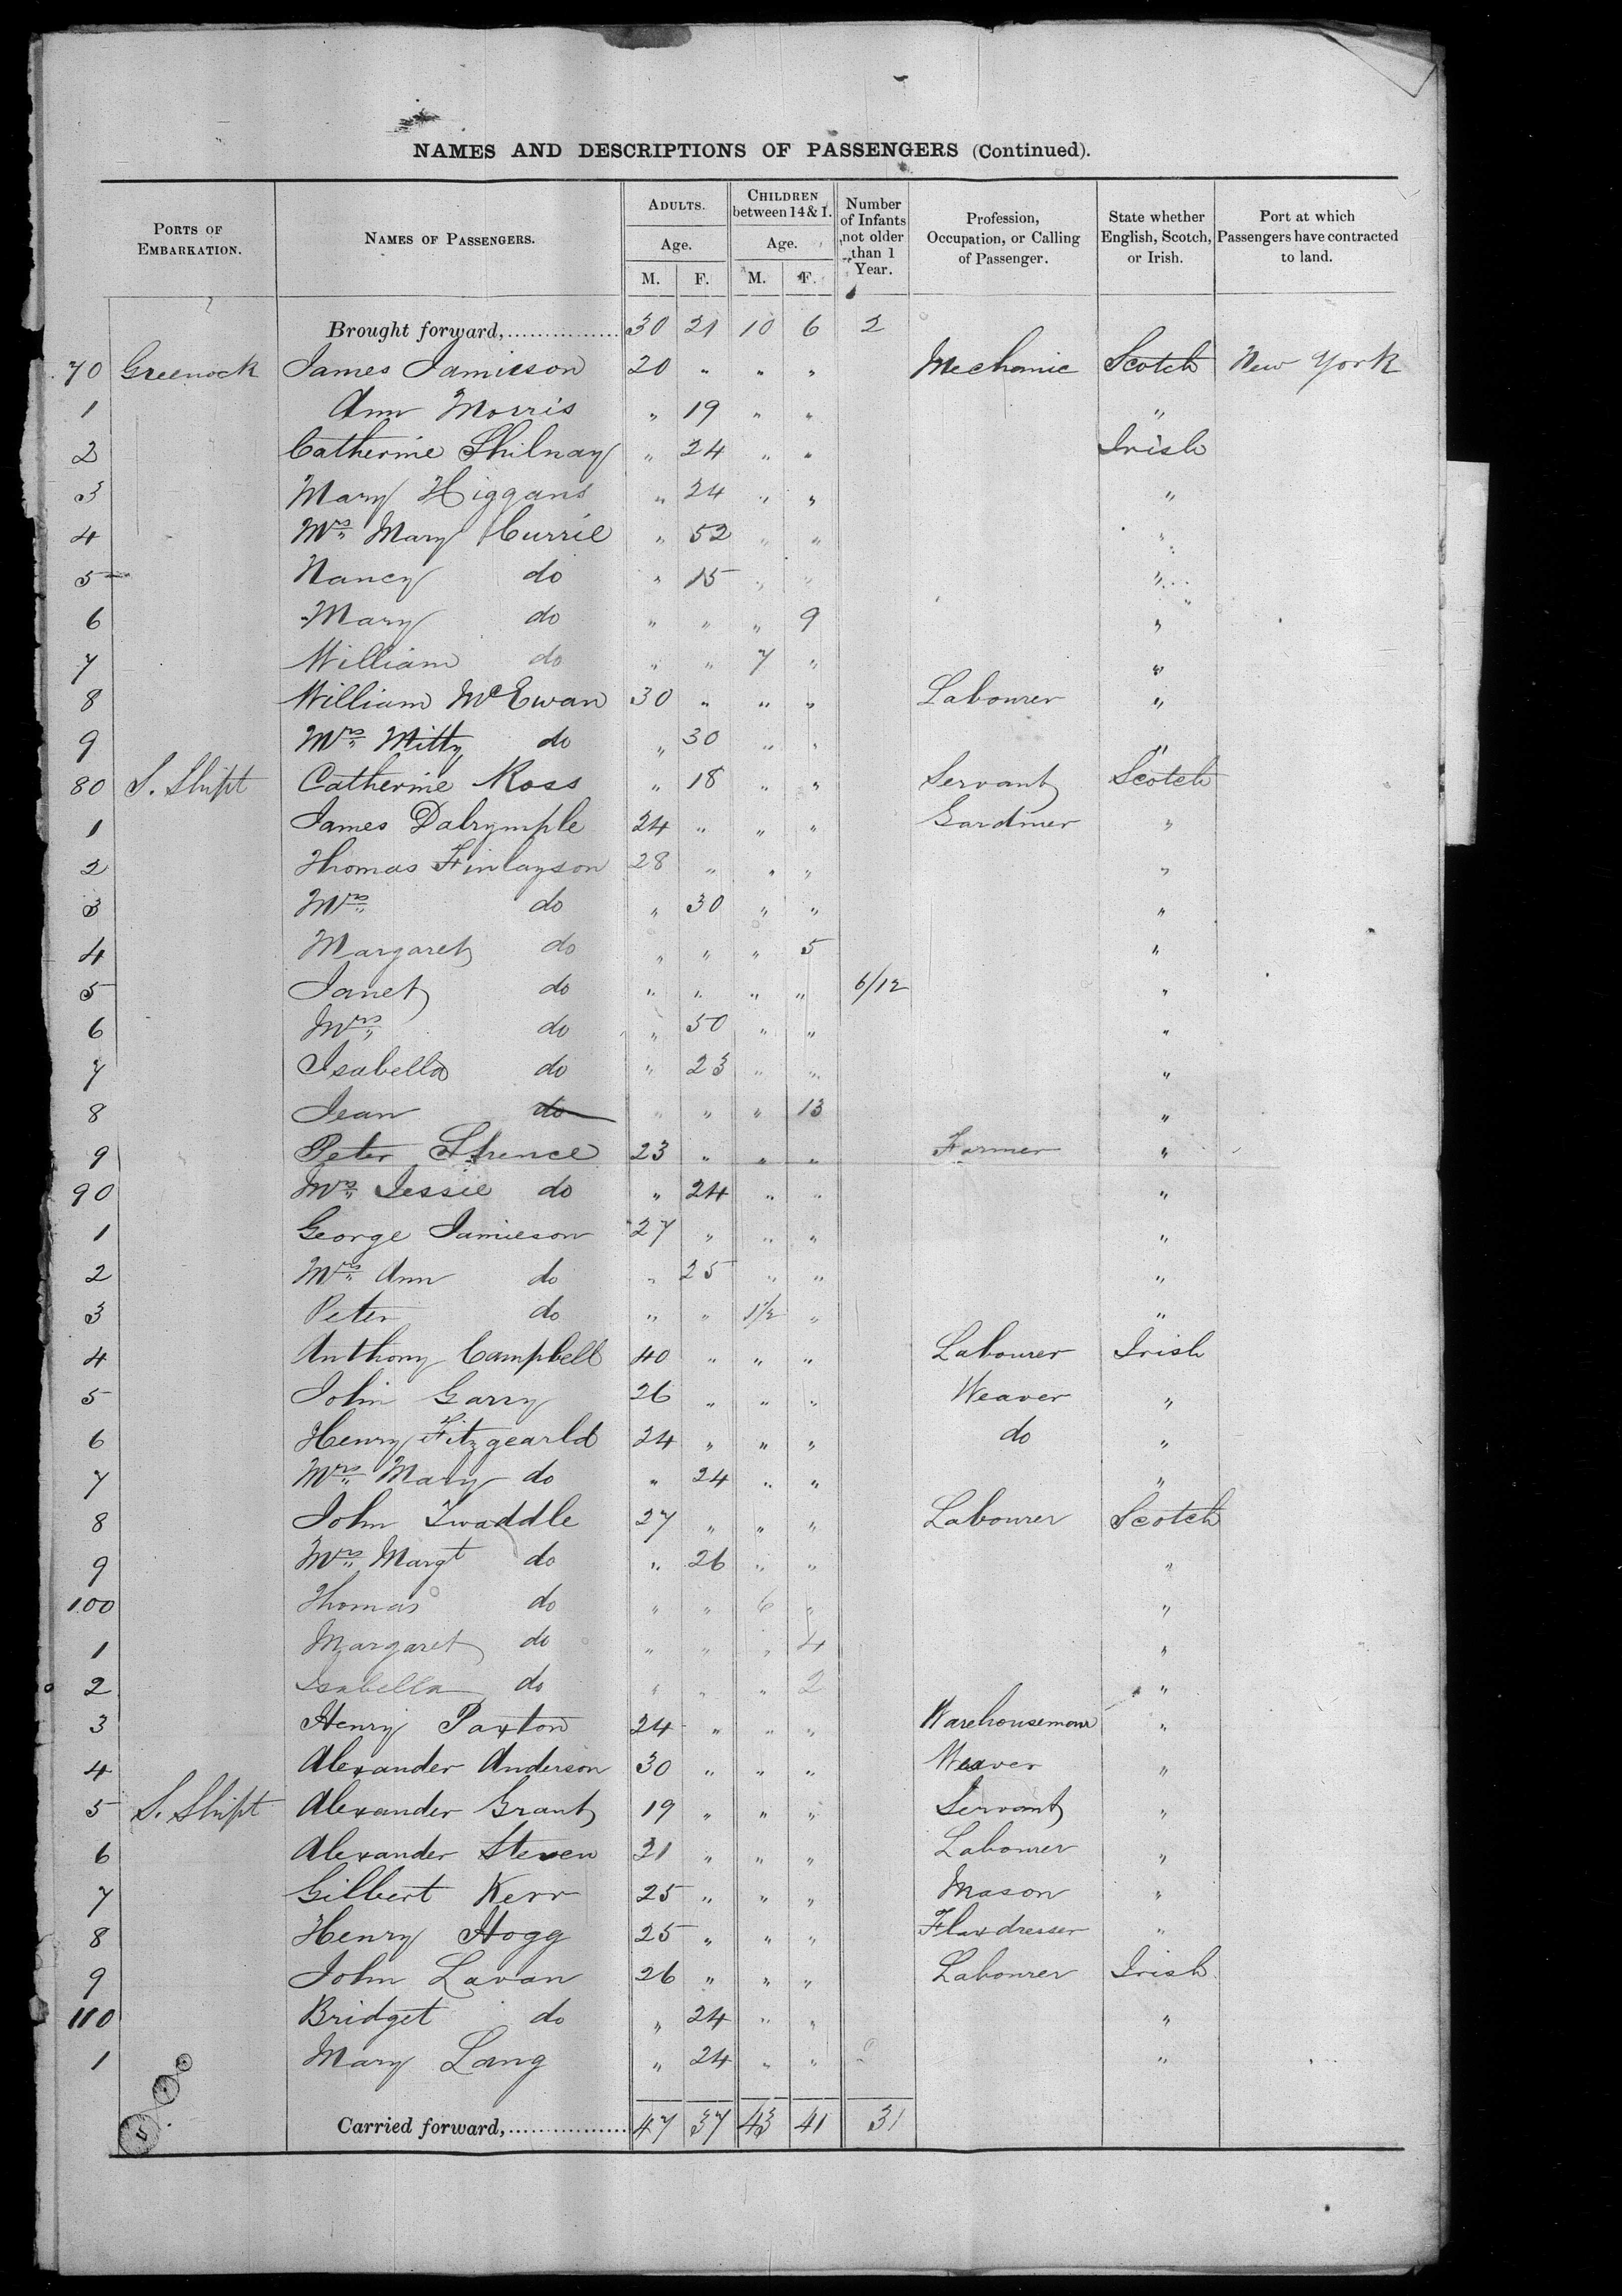 NAMES AND DESCRIPTIONS OF PASSENGERS (Continued).
PORTS OF EMBARKATION. NAMES OF PASSENGERS. ADULTS. Age. M. F. CHILDREN between 14 & 1. Age. M. F. Number of Infants not older than 1 Year. Profession, Occupation, or Calling of Passenger. State whether English, Scotch, or Irish. Port at which Passengers have contracted to land.
Brought forward, 30 21 10 6 2
70 Greenock James Jamieson 20 " " " Mechanic Scotch New York
1 Ann Morris " 19 " " "
2 Catherine Shilnay " 24 " " Irish
3 Mary Higgans " 24 " " "
4 Mrs Mary Currie " 52 " " "
5 Nancy do " 15 " " "
6 Mary do " " " 9 "
7 William do " " 7 " "
8 William McEwan 30 " " " Labourer "
9 Mrs Mitty do " 30 " " "
80 S. Shipt Catherine Ross " 18 " " Servant Scotch
1 James Dalrymple 24 " " " Gardiner "
2 Thomas Finlayson 28 " " " "
3 Mrs do " 30 " " "
4 Margaret do " " " 5 "
5 Janet do " " " " 6/12 "
6 Mrs do " 50 " " "
7 Isabella do " 23 " " "
8 Jean do " " " 13 "
9 Peter 23 " " " Farmer "
90 Mrs Jessie do " 24 " " "
1 George Jamieson 27 " " " "
2 Mrs Ann do " 25 " " "
3 Peter do " " 1½ " "
4 Anthony Campbell 40 " " " Labourer Irish
5 John Garry 26 " " " Weaver "
6 Henry Fitzgearld 24 " " " do "
7 Mrs Mary do " 24 " " "
8 John Twaddle 27 " " " Labourer Scotch
9 Mrs Margt do " 26 " " "
100 Thomas do " " 6 " "
1 Margaret do " " " 4 "
2 Isabella do " " " 2 "
3 Henry Paxton 24 " " " Warehouseman "
4 Alexander Anderson 30 " " " Weaver "
5 S. Shipt Alexander Grant 19 " " " Servant "
6 Alexander Steven 21 " " " Labourer "
7 Gilbert Kerr 25 " " " Mason "
8 Henry Hogg 25 " " " Flaxdresser "
9 John Lavan 26 " " " Labourer Irish
110 Bridget do " 24 " " "
1 Mary Lang " 24 " " "
Carried forward, 47 37 43 41 31